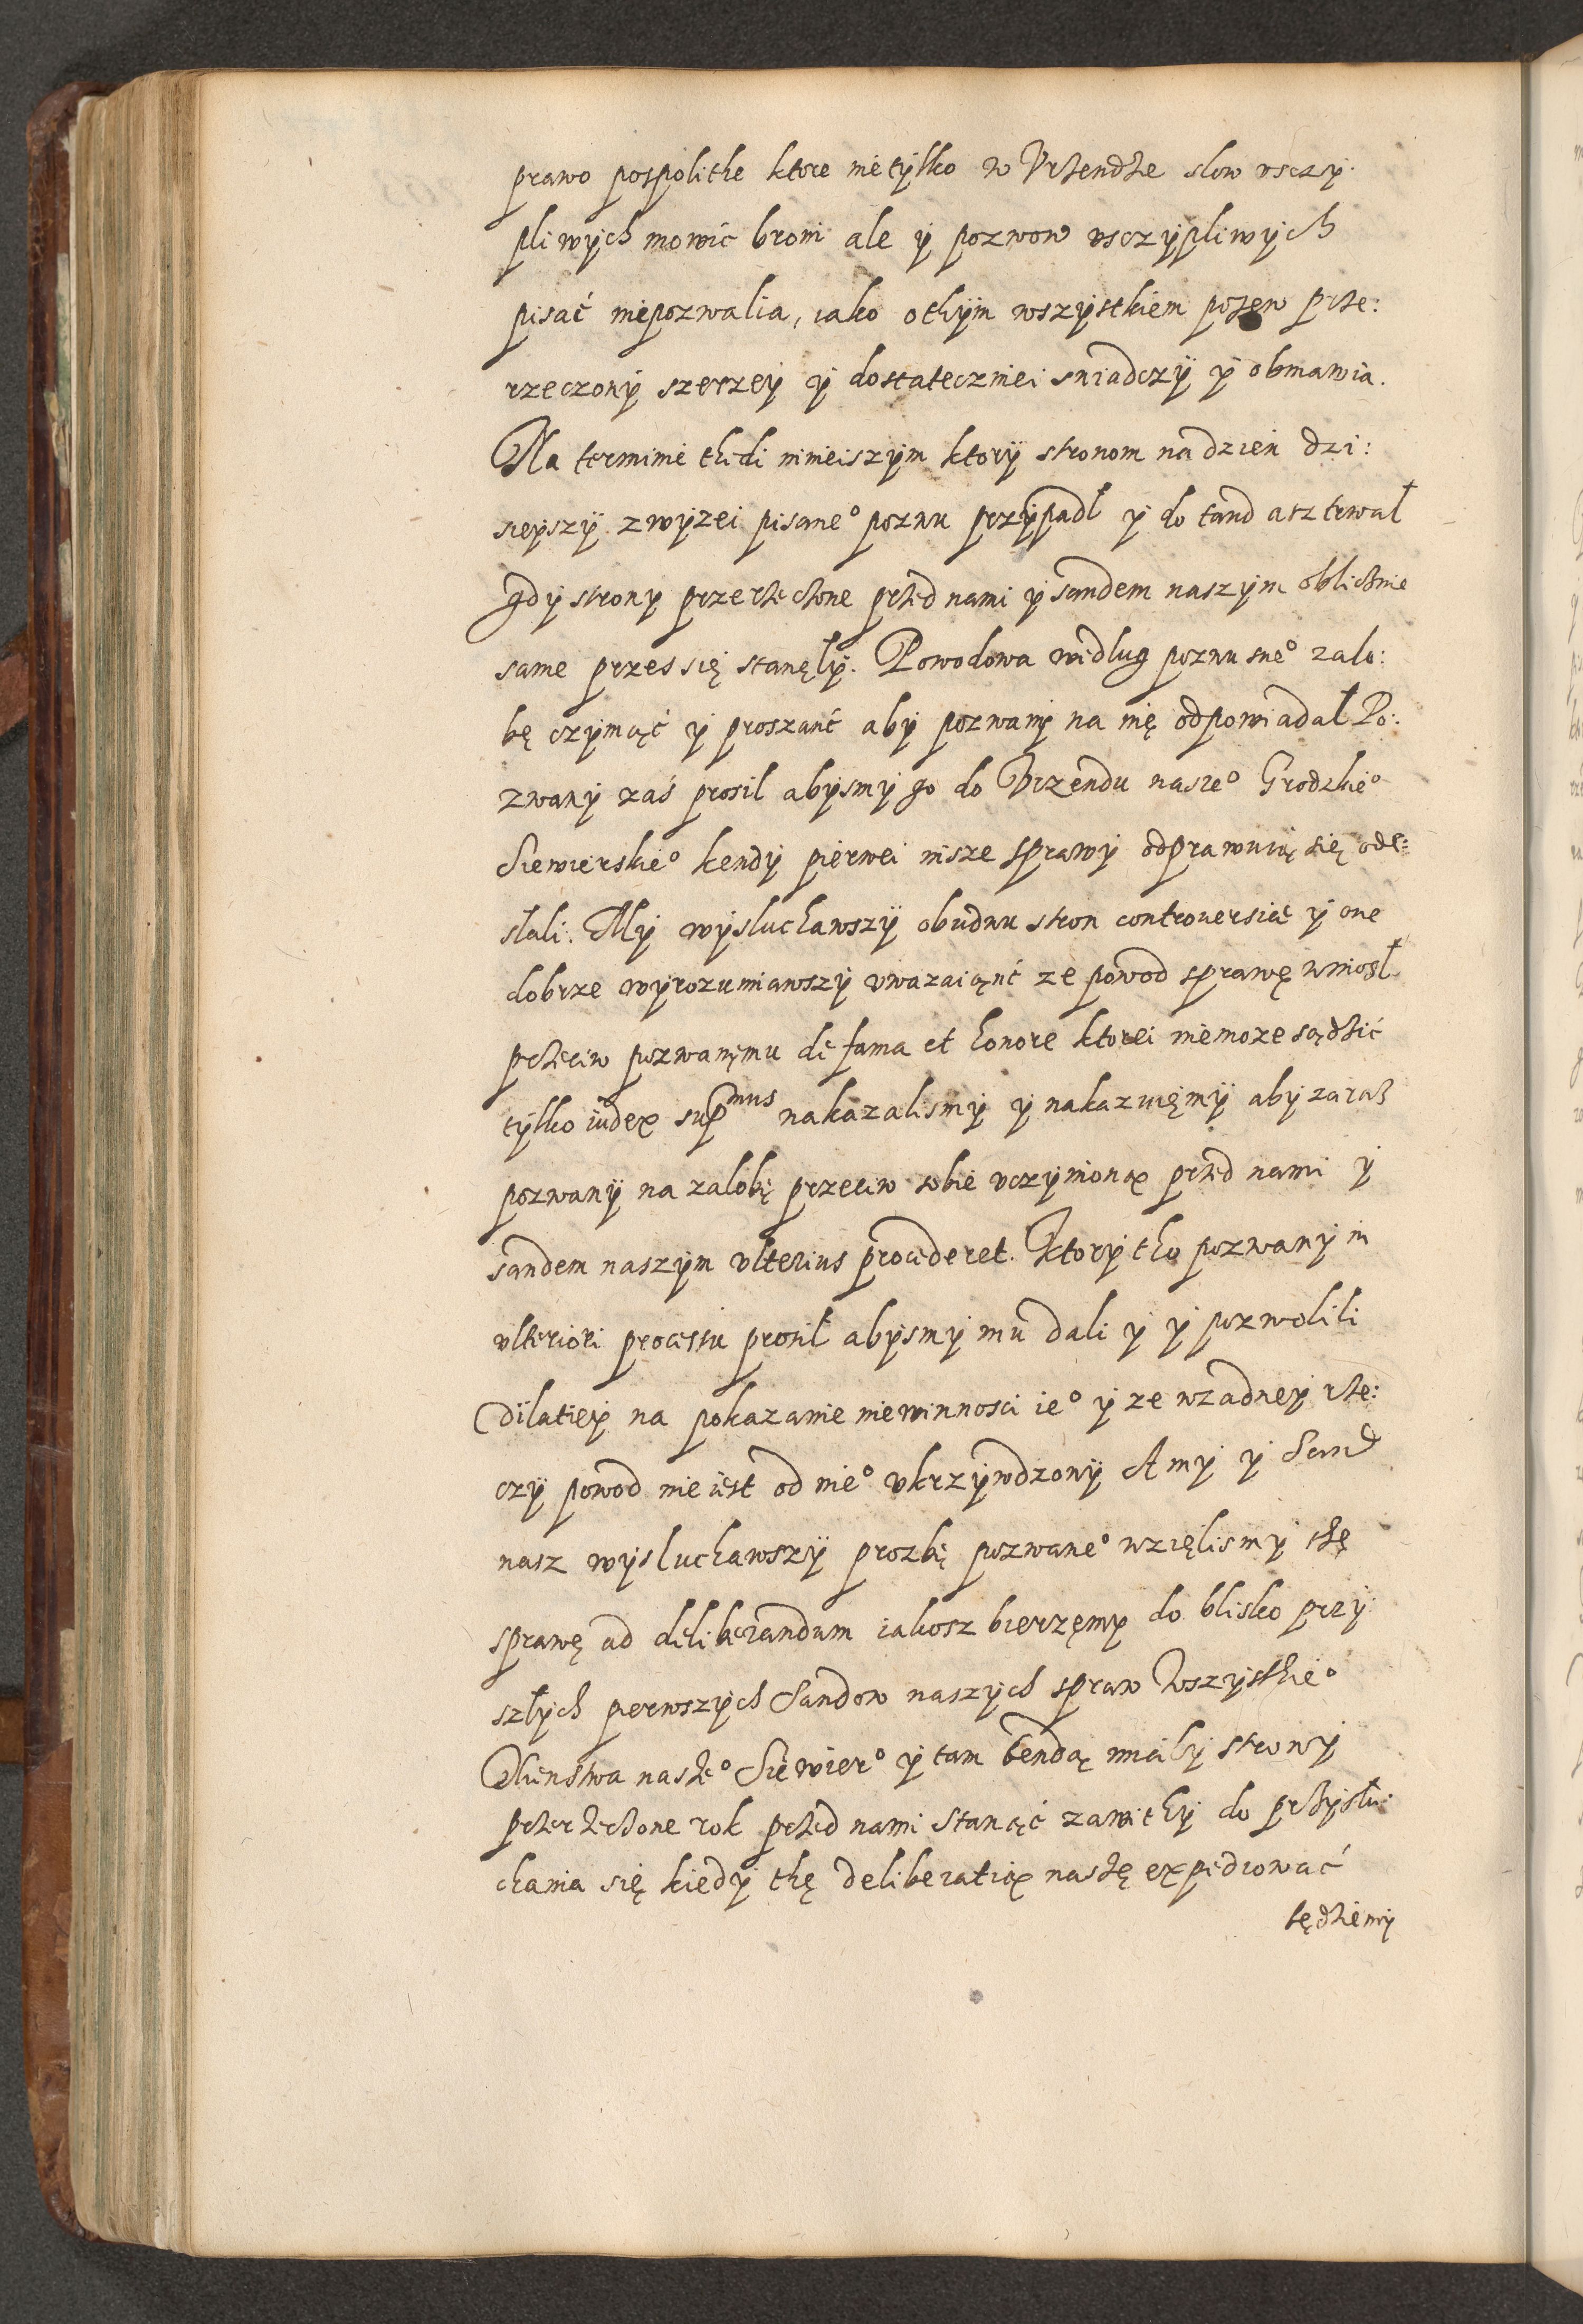 prawo pospolithe ktore nietylko w Vrzendzie slow vsczy:
pliwych mowić broni ale y pozwow vsczypliwych
pisać niepozwalia, iako othym wszystkiem pozew prze:
rzeczony szerzey y dostatecznieı swiadczy y obmawia.
Na terminie thedi ninieiszym ktory stronom na dzień dzi:
sieyszy zwyzei pisane° pozwu przypadł y do tand asz trwał
gdy strony przerzeczone przed nami y sandem naszym oblicznie
same przes się stanęły. Powodowa według pozwu swe° zalo:
bę czyniąć y proszanć aby pozwany na nię odpowiadał Po:
zwany zaś prosil abysmy go do Vrzendu nasze° Grodzkie°
Siewierskie° kendy pierwei insze sprawy odprawuią się ode:
słali. My wysluchawszy obudwu stron controuersię y one
dobrze wyrozumiawszy vwazaiąnć ze powod sprawę wniosł
przeciw pozwanemu de fama et honore ktorei niemoze sądzić
tylko iudex sup^mus nakazalismy y nakazuięmy aby zaraz
pozwany na zalobę przeciw sobie vczynioną przed nami y
sandem naszym vlterius procederet. Ktory tho pozwany in
vlteriori processu prosił abysmy mu dali y y pozwolili
dilatiey na pokazanie niewinnosci ie° y ze wzadney rze:
czy powod nie iest od nie° vkrzywdzony A my y Sand
nasz wysluchawszy prozbę pozwane° wzięlismy thę
sprawę ad deliberandum iakosz bierzęmy do blisko przy:
szłych pierwszych Sandow naszych spraw wszystkie°
Xienstwa nasze° Siewier° y tam bendą miały strony
przerzeczone rok przed nami stanąć zawithy do przysłu:
chania się kiedy thę deliberatią naszę expediować
będziemy